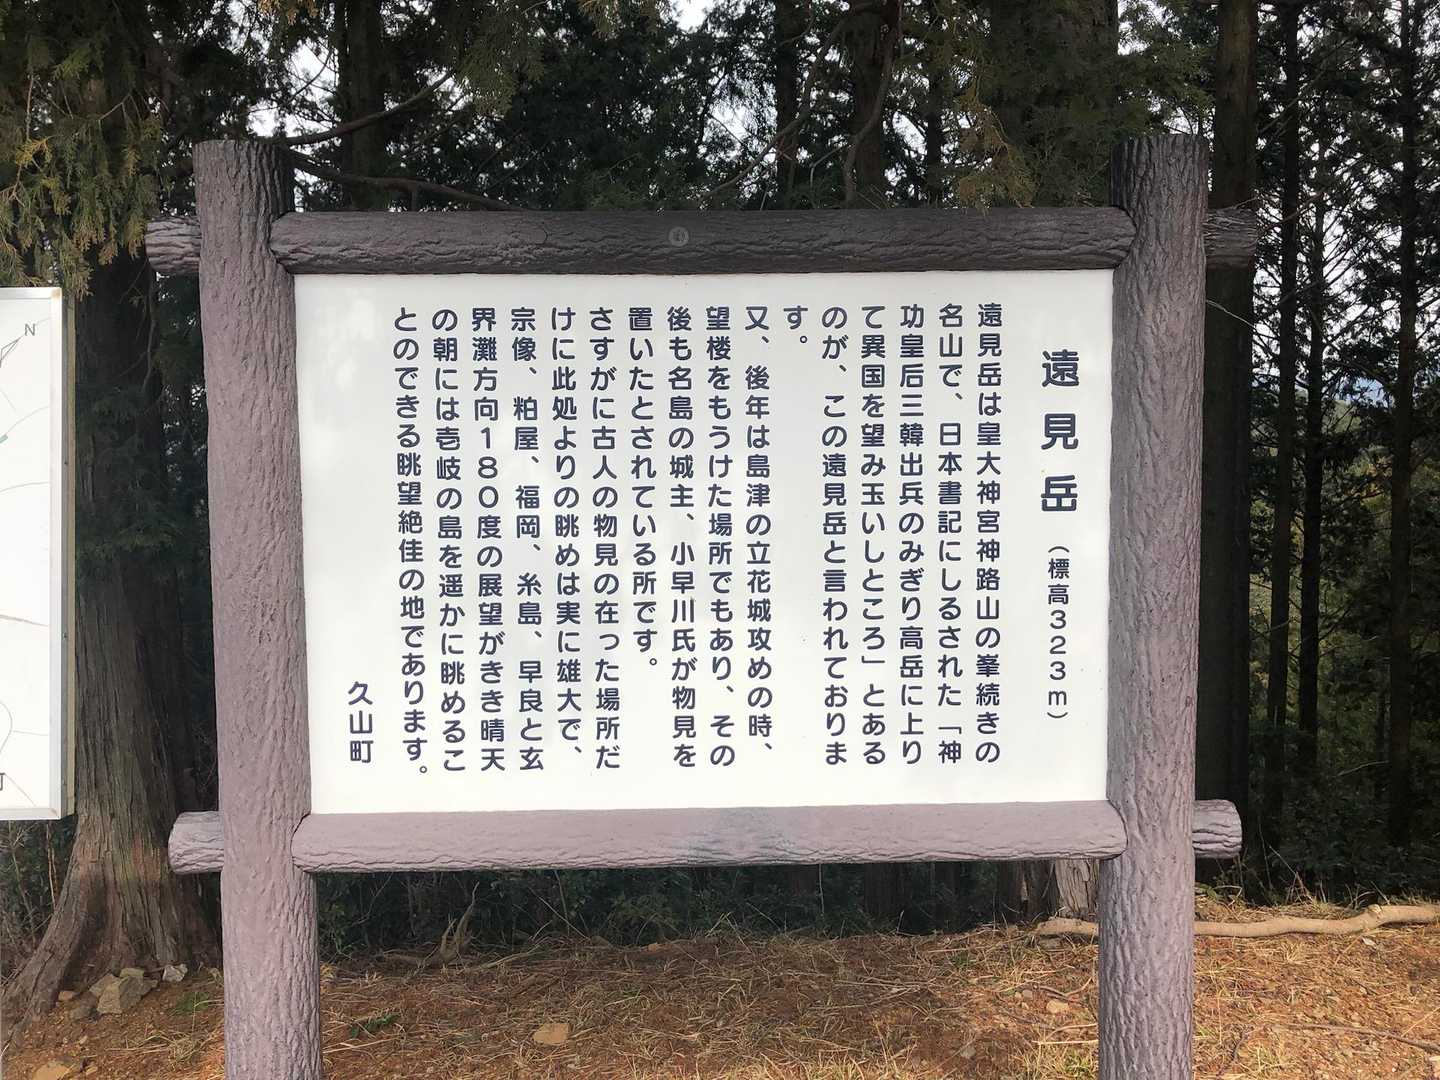 遠見岳（標高３２３ｍ）
遠見岳は皇大神宮神路山の峯続きの
名山で、日本書記にしるされた「神
功皇后三韓出兵のみぎり高岳に上り
て異国を望み玉いしところ」とある
のが、この遠見岳と言われておりま
す。
又、後年は島津の立花城攻めの時、
望楼をもうけた場所でもあり、その
後も名島の城主、小早川氏が物見を
置いたとされている所です。
さすがに古人の物見の在った場所だ
けに此処よりの眺めは実に雄大で、
宗像、粕屋、福岡、糸島、早良と玄
界灘方向１８０度の展望がきき晴天
の朝には壱岐の島を遥かに眺めるこ
とのできる眺望絶佳の地であります。
久山町
N
町